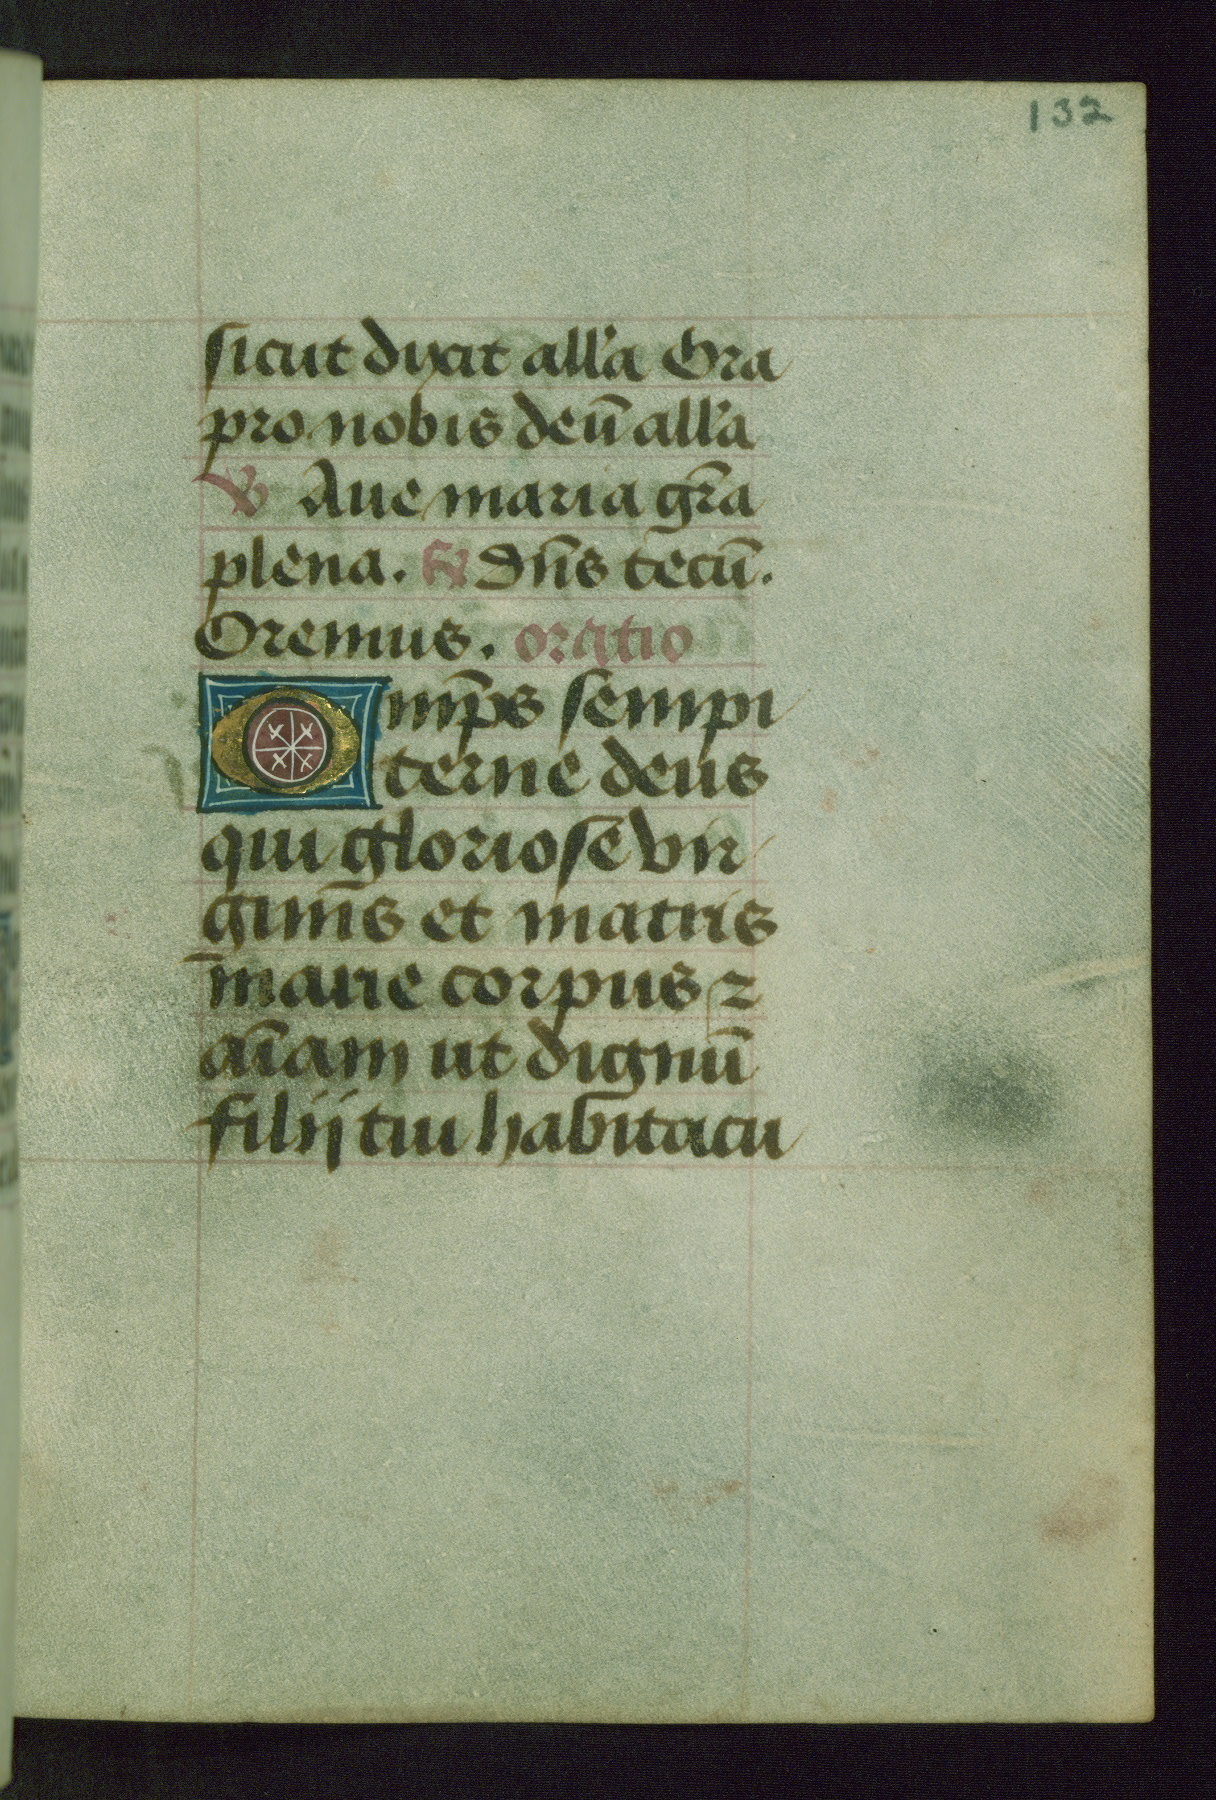 132
sicut dixit all'a Ora
pro nobis deū all'a
℣ Aue maria gr̄a
plena. ℟ Dn̄s tecū.
Oremus. oratio
Omīps sempi
terne deus
qui gloriose vir
gini̅s et matris
marie corpus ⁊
aīam ut dignū
filij tui habitacu